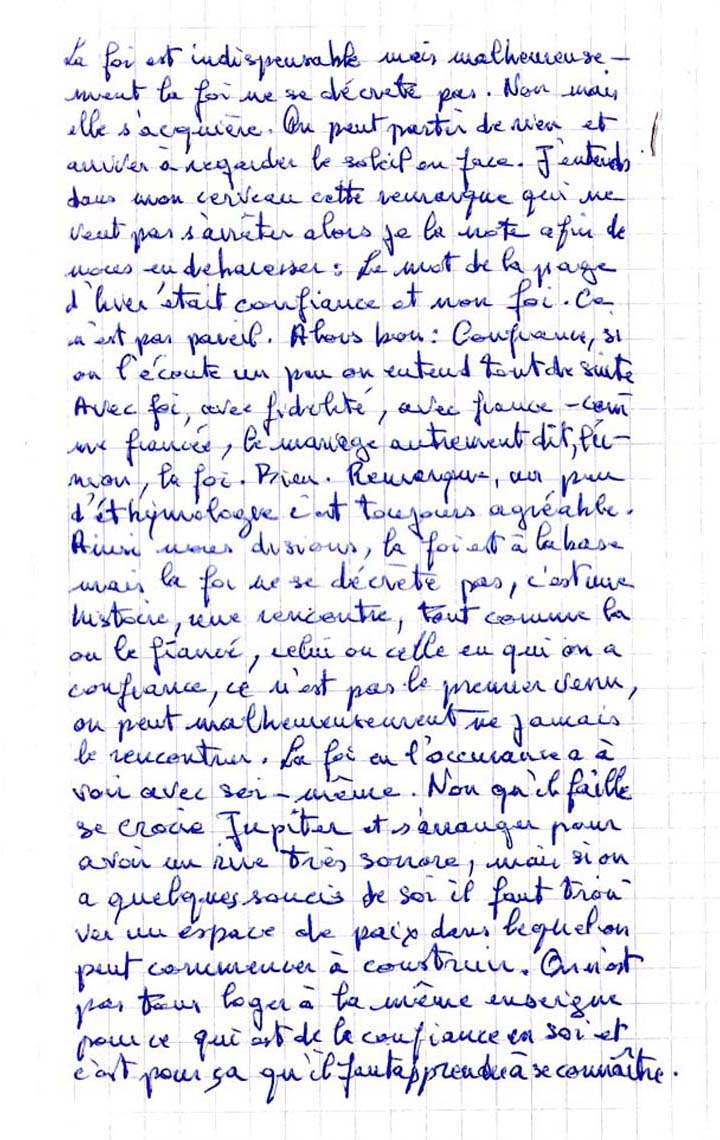 La foi est indispensable mais malheureuse-
ment la foi ne se décrète pas. Non mais
elle s'acquière. On peut partir de rien et
arriver à regarder le soleil en face. J'entends
dans mon cerveau cette remarque qui ne
veut pas s'arrêter alors je la note afin de
nous en debarasser : Le mot de la page
d'hier était confiance et non foi. Ce
n'est pas pareil. Alors bon : Confiance, si
on l'écoute un peu on entend tout de suite
Avec foi, avec fidélité, avec fiance - com
me fiancée, le mariage autrement dit, l'u-
nion, la foi. Bien. Remarque, un peu
d'éthymologie c'est toujours agréable.
Ainsi nous disions, la foi est à la base
mais la foi ne se décrète pas, c'est une
histoire, une rencontre, tout comme la
ou le fiancé, celui ou celle en qui on a
confiance, ce n'est pas le premier venu,
on peut malheureusement ne jamais
le rencontrer. La foi en l'occurance a à
voir avec soi-même. Non qu'il faille
se croire Jupiter et s'arranger pour
avoir un rire très sonore, mais si on
a quelques soucis de soi il faut trou
ver un espace de paix dans lequel on
peut commencer à construire. On n'est
pas tous loger à la même enseigne
pour ce qui est de la confiance en soi et
c'est pour ça qu'il faut apprendre à se connaître.